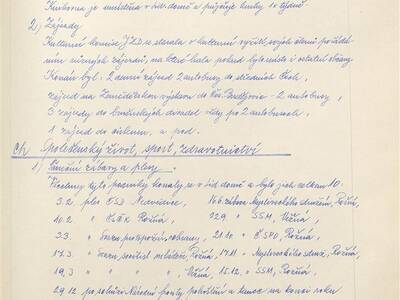 Knihovna je umístěna v lid. domě a půjčuje knihy 1x týdně.
2) Zájezdy
Kulturní komise JZD se starala o kulturní vyžití svých členů pořádá-
ním různých zájezdů, na které brala pokud bylo místo i ostatní občany.
Konán byl: 2 denní zájezd 2 autobusy do středních Čech,
zájezd na Zemědělskou výstavu do Čes. Budějovic - 2 autobusy,
3 zájezdy do brněnských divadel vždy po 2 autobusech,
1 zájezd do cirkusu, a pod.
Ch, Společenský život, sport, zdravotnictví
1) Taneční zábavy a plesy.
Všechny tyto podniky konaly se v lid. domě a bylo jich celkem 10.
3.2. ples ČSD Nedvědice, 16.6. zábava Mysliveckého sdružení, Rožná,
10.2. " Rožná, 22.9. " SSM, Věžná,
3.3. " Svazu protipož. ochrany, 21.10. " SPO, Rožná,
17.3. " Svazu soc. mládeže, Rožná, 17.11. " Mysliveckého sdruž., Rožná,
19.3. " " " Věžná, 15.12. " SSM, Rožná,
29.12. posezení Národní fronty pohoštění a tanec na konci roku